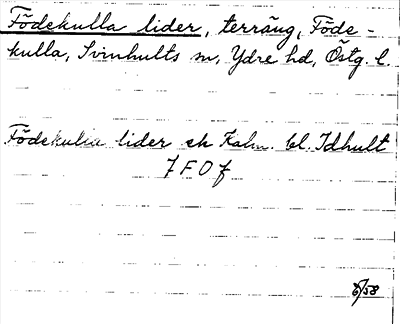 Födekulla lider, terräng, Föde-
kulla, Svinhults sn, Ydre hd, Östg. l.
Födekulla lider ek Kalm. bl. Idhult
7 F 0 f
58